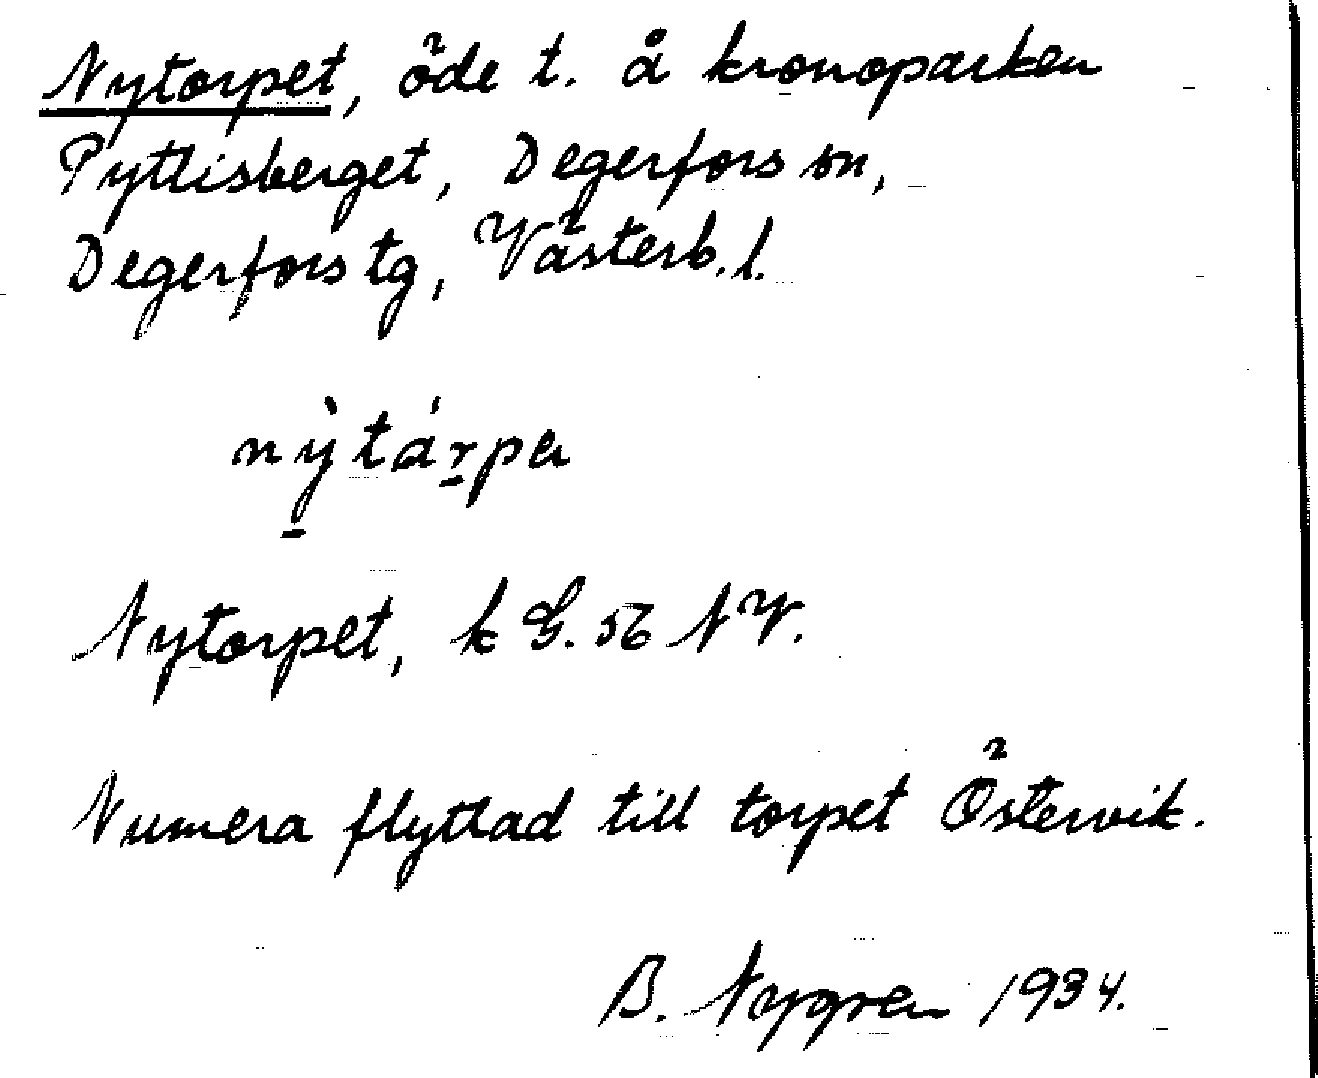 Nytorpet, öde t. å kronoparken
Pyttisberget, Degerfors sn,
Degerfors tg, Västerb. l.
nỳtárpa
Nytorpet, k G. 56 NV.
Numera flyttad till torpet Östervik.
B. Nygren 1934.